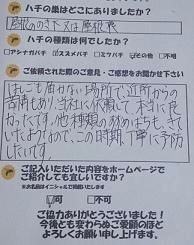 ハチの巣はどこにありましたか?
屋根のすき又は屋根裏
ハチの種類は何でしたか?
アシナガバチ スズメバチ ミツバチ その他 不明
ご依頼された際のご意見・ご感想をお聞かせ下さい
はしごも届かない場所で近所からの
苦情もあり、当社に依頼して本当に良
かったです。他種類の蜂のはちも
いたおり この時期、丁寧に予防
したいです。
ご記入いただいた内容をホームページで
ご紹介しても宜しいですか?
※お名前はイニシャルで掲載いたします
可 不可
ご協力ありがとうございます!
今後とも変わらぬご愛顧のほど
よろしくお願い申し上げます。